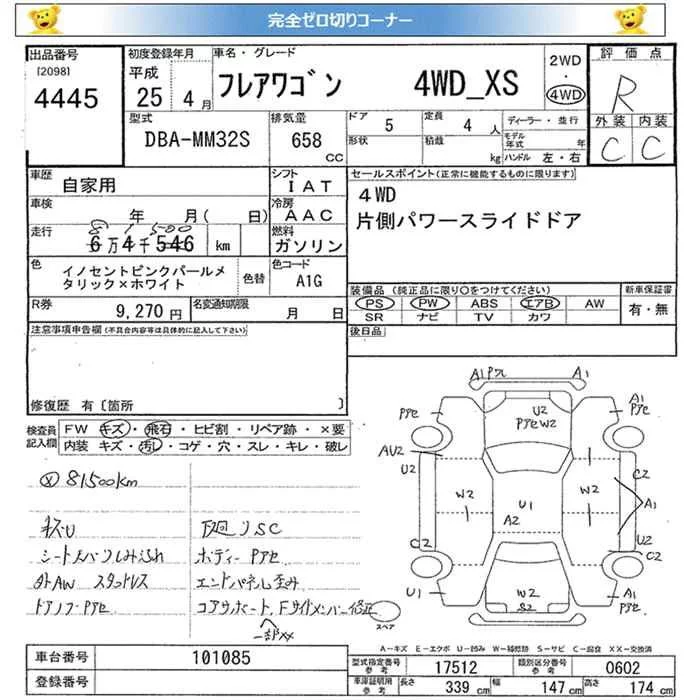 完全ゼロ切りコーナー
出品番号 初度登録年月 車名・グレード 2WD 評価点
[2098] 平成 フレアワゴン 4WD_XS ・ R
4445 25年 4月 4WD
型式 排気量 ドア 5 定員 4人 ディーラー・並行 外装 内装
DBA-MM32S 658 CC 形状 積載 kg モデル年式 年 C C
ハンドル 左・右
車歴 自家用 シフト IAT セールスポイント(正常に機能するものに限ります)
車検 年 月( 日) 冷房 AAC 4WD
片側パワースライドドア
走行 8 1,500
6万4千546 km 燃料 ガソリン
色 イノセントピンクパールメ 色替 色コード A1G
タリック×ホワイト
装備品(純正品に限り○をつけてください) 新車保証書
R券 9,270円 名変通知期限 月 日 PS PW ABS エアB AW 有・無
SR ナビ TV カワ
注意事項申告欄(不具合内容等は具体的に記入して下さい) 後日品
修復歴 有〔箇所 〕
検査員 FW キズ・飛石・ヒビ割・リペア跡・×要
記入欄 内装 キズ・汚レ・コゲ・穴・スレ・キレ・破レ
A1 A1
U2
W2
A1
AU2
U2 C2
W2 U1 W2 A1
A2
C2 U2
C2
U1 W2 A1
S2
81500km
キズU 下廻りSC
ボディーPアセ
外AW スタッドレス エンドパネル歪み
ドアノブ・Pアセ コアサポート、Fサイドメンバー修正
一部XX
スペア
A-キズ E-エクボ U-凹み W-補修跡 S-サビ C-腐食 XX-交換済
車台番号 101085 型式指定番号 参考 17512 類別区分番号 参考 0602
登録番号 車庫証明用 参考 長さ 339cm 幅 147cm 高さ 174cm